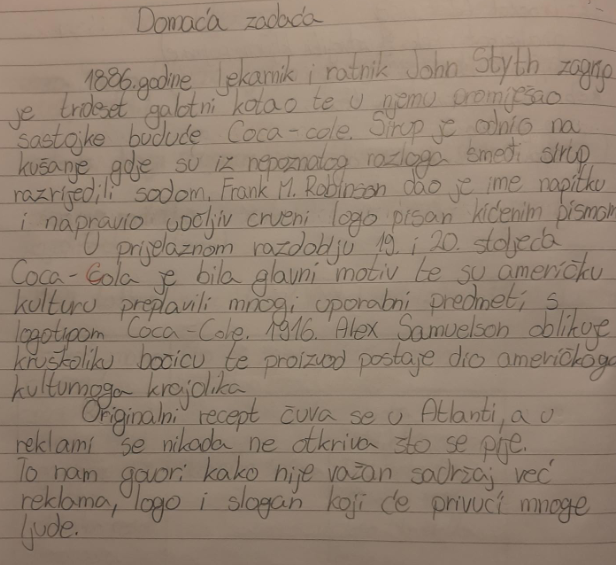 Domaća zadaća
1886. godine ljekarnik i ratnik John Styth zagrijo
je trideset galotni kotao te u njemu promiješao
sastojke buduće Coca-cole. Sirup je odnio na
kušanje gdje su iz nepoznatog razloga smeđi sirup
razrijedili sodom. Frank M. Robinson dao je ime napitku
i napravio uočljiv crveni logo pisan kićenim pismom
U prijelaznom razdoblju 19. i 20. stoljeća
Coca-Cola je bila glavni motiv te su američku
kulturu preplavili mnogi uporabni predmeti s
logotipom Coca-Cole. 1916. Alex Samuelson oblikuje
kruškoliku bocicu te proizvod postaje dio američkoga
kulturnoga krajolika
Originalni recept čuva se u Atlanti, a u
reklami se nikada ne otkriva što se pije.
To nam govori kako nije važan sadržaj već
reklama, logo i slogan koji će privući mnoge
ljude.